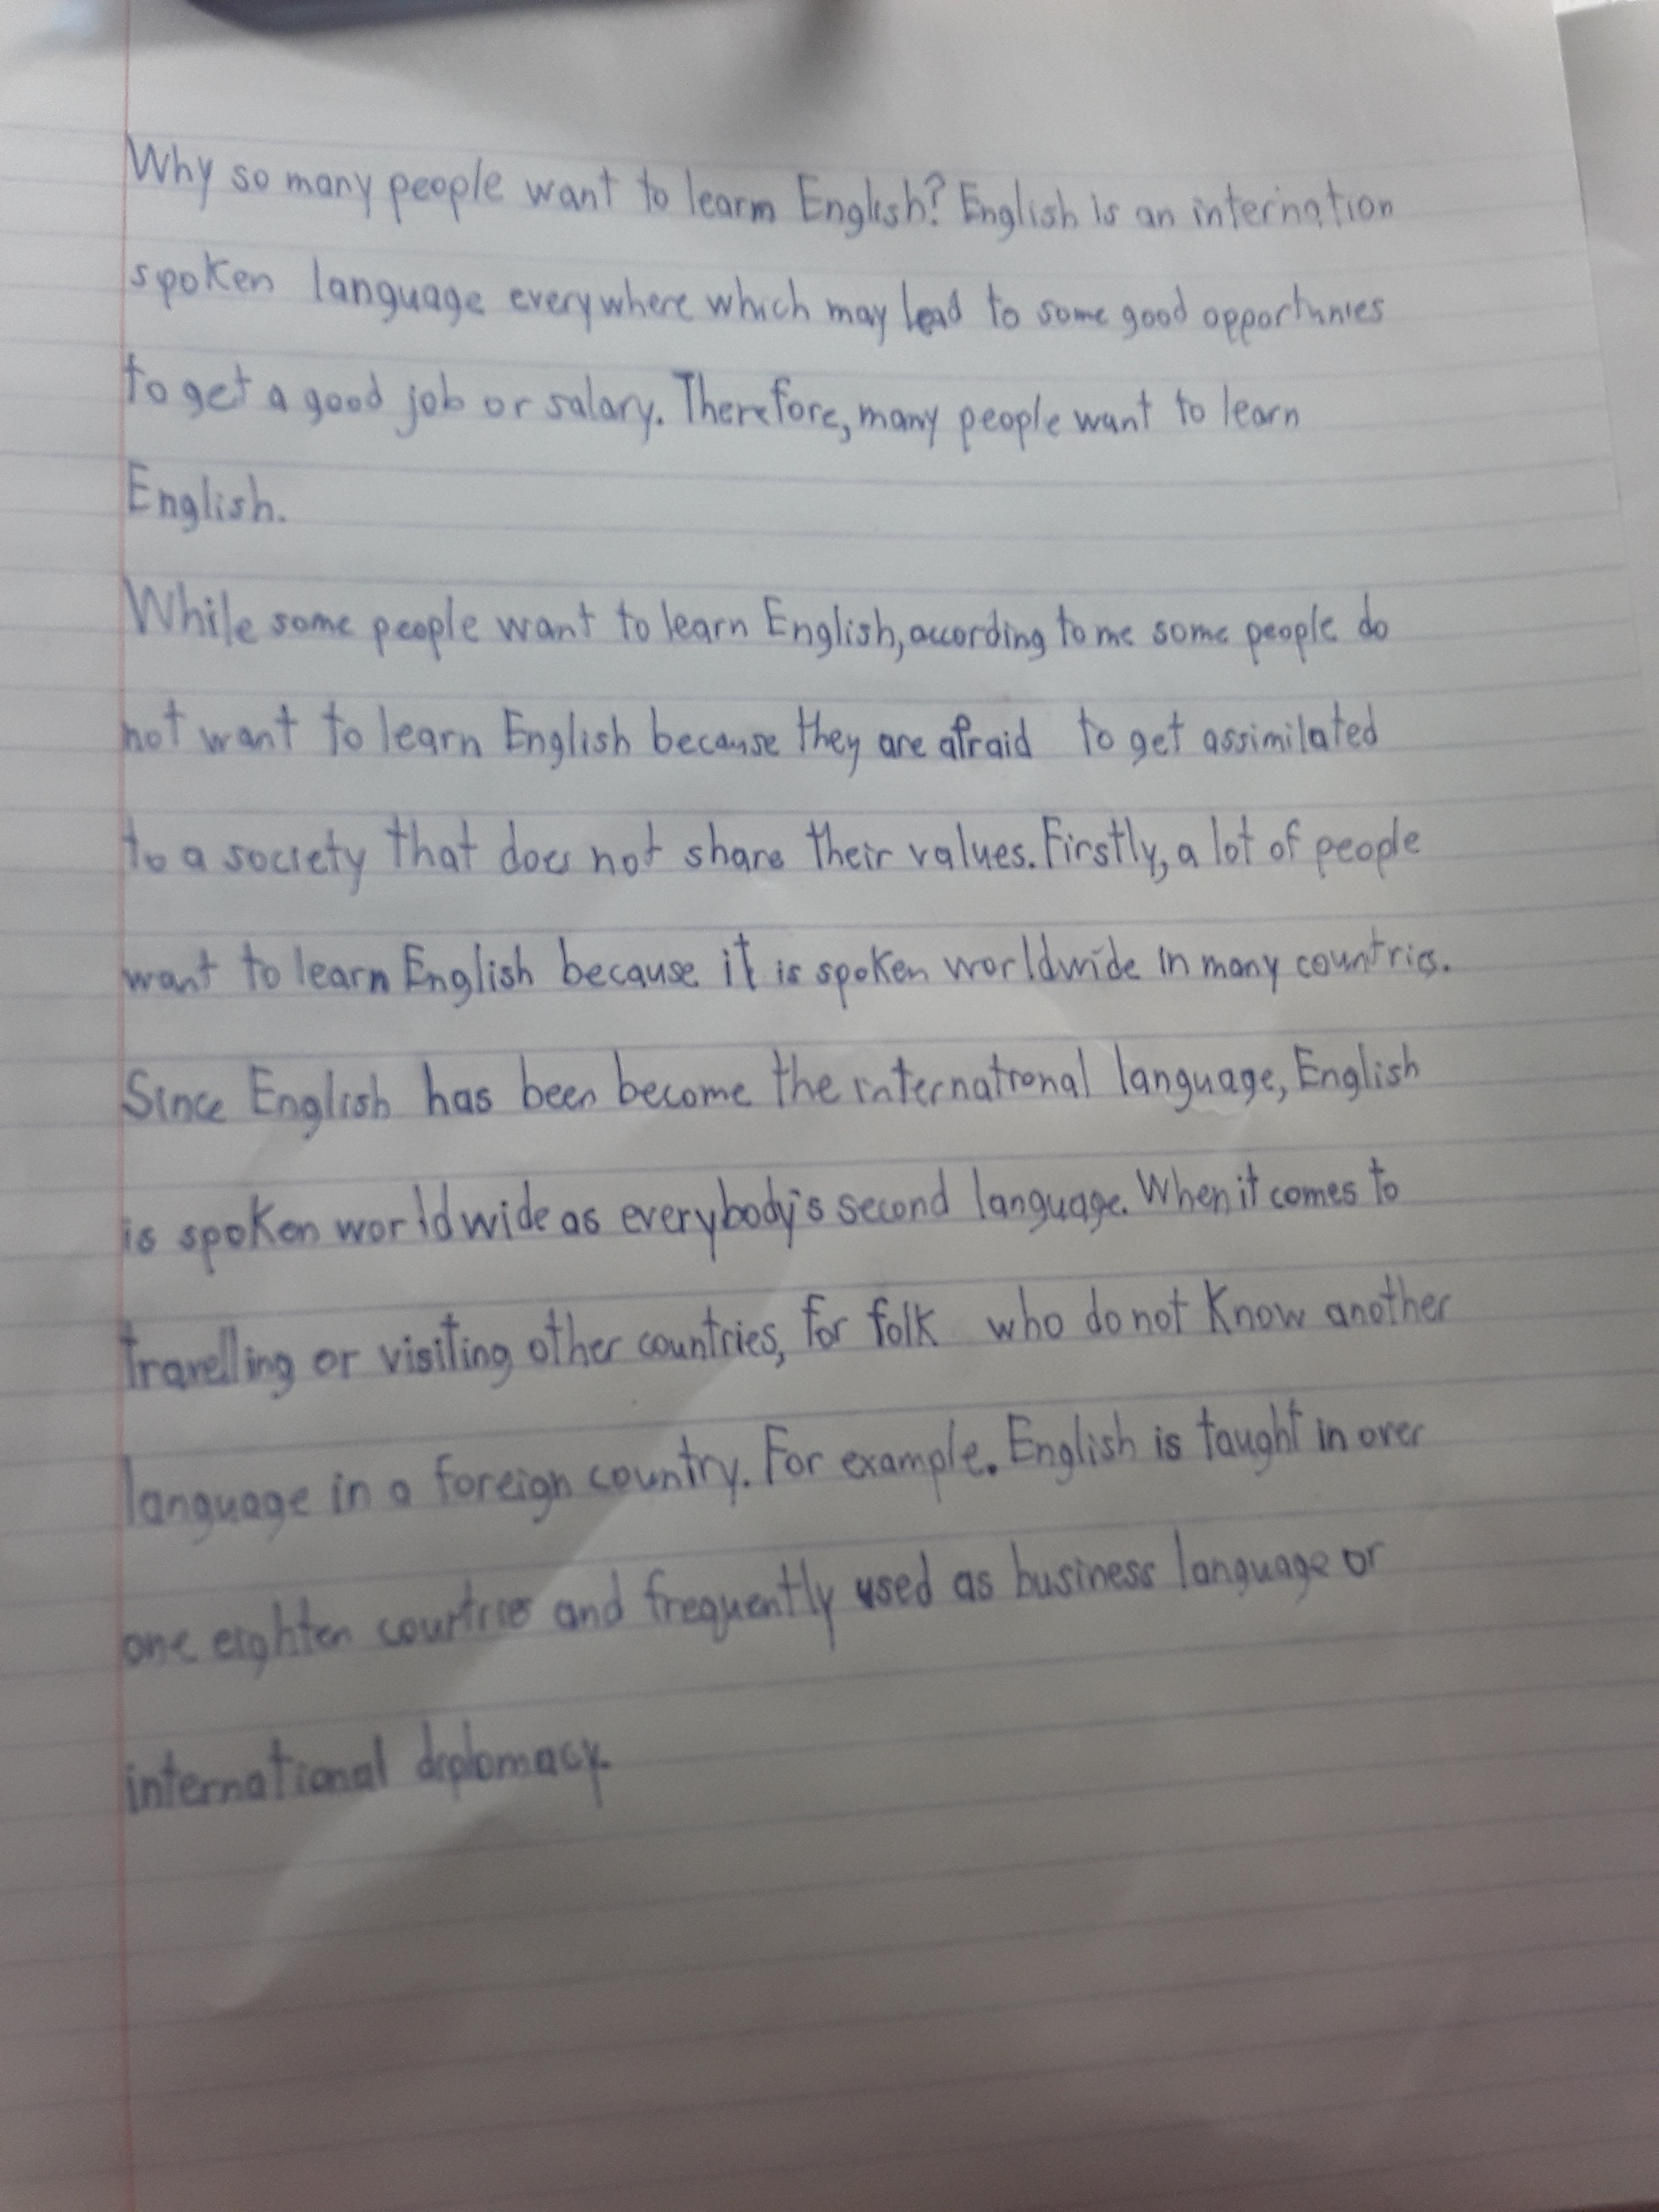 Why so many people want to learm English? English is an internation
spoken language everywhere which may lead to some good opportunies
to get a good job or salary. Therefore, many people want to learn
English.
While some people want to learn English, according to me some people do
not want to learn English because they are afraid to get assimilated
to a society that does not share their values. Firstly, a lot of people
want to learn English because it is spoken worldwide in many countries.
Since English has been become the international language, English
is spoken worldwide as everybody's second language. When it comes to
travelling or visiting other countries, for folk who do not know another
language in a foreign country. For example. English is taught in over
one eighten countries and frequently used as business language or
international diplomacy.